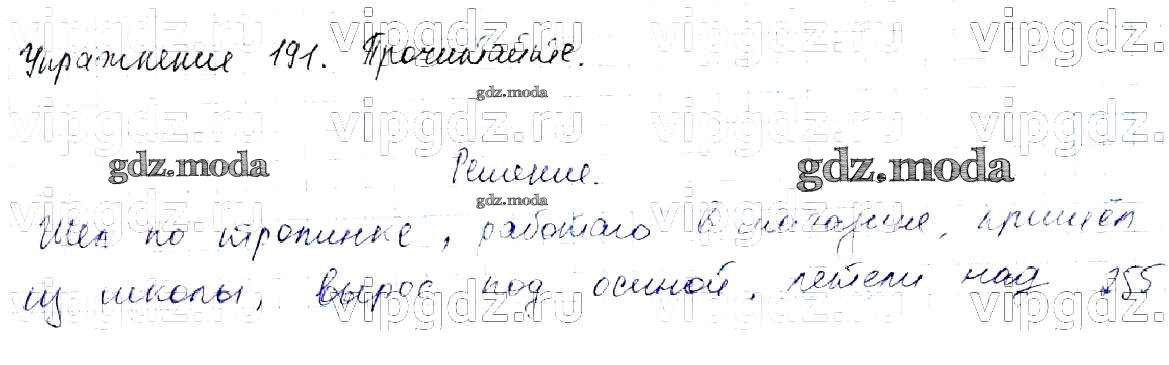 vipgdz.ru vipgdz.ru vipgdz.ru vipgdz.ru
Упражнение 191. Прочитайте.
gdz.moda
vipgdz.ru vipgdz.ru vipgdz.ru vipgdz.ru
gdz.moda Решение. gdz.moda
gdz.moda
vipgdz.ru vipgdz.ru vipgdz.ru vipgdz.ru
Шёл по тропинке, работаю в магазине, пришёл
из школы, вырос под осиной, летели над
vipgdz.ru vipgdz.ru vipgdz.ru vipgdz.ru